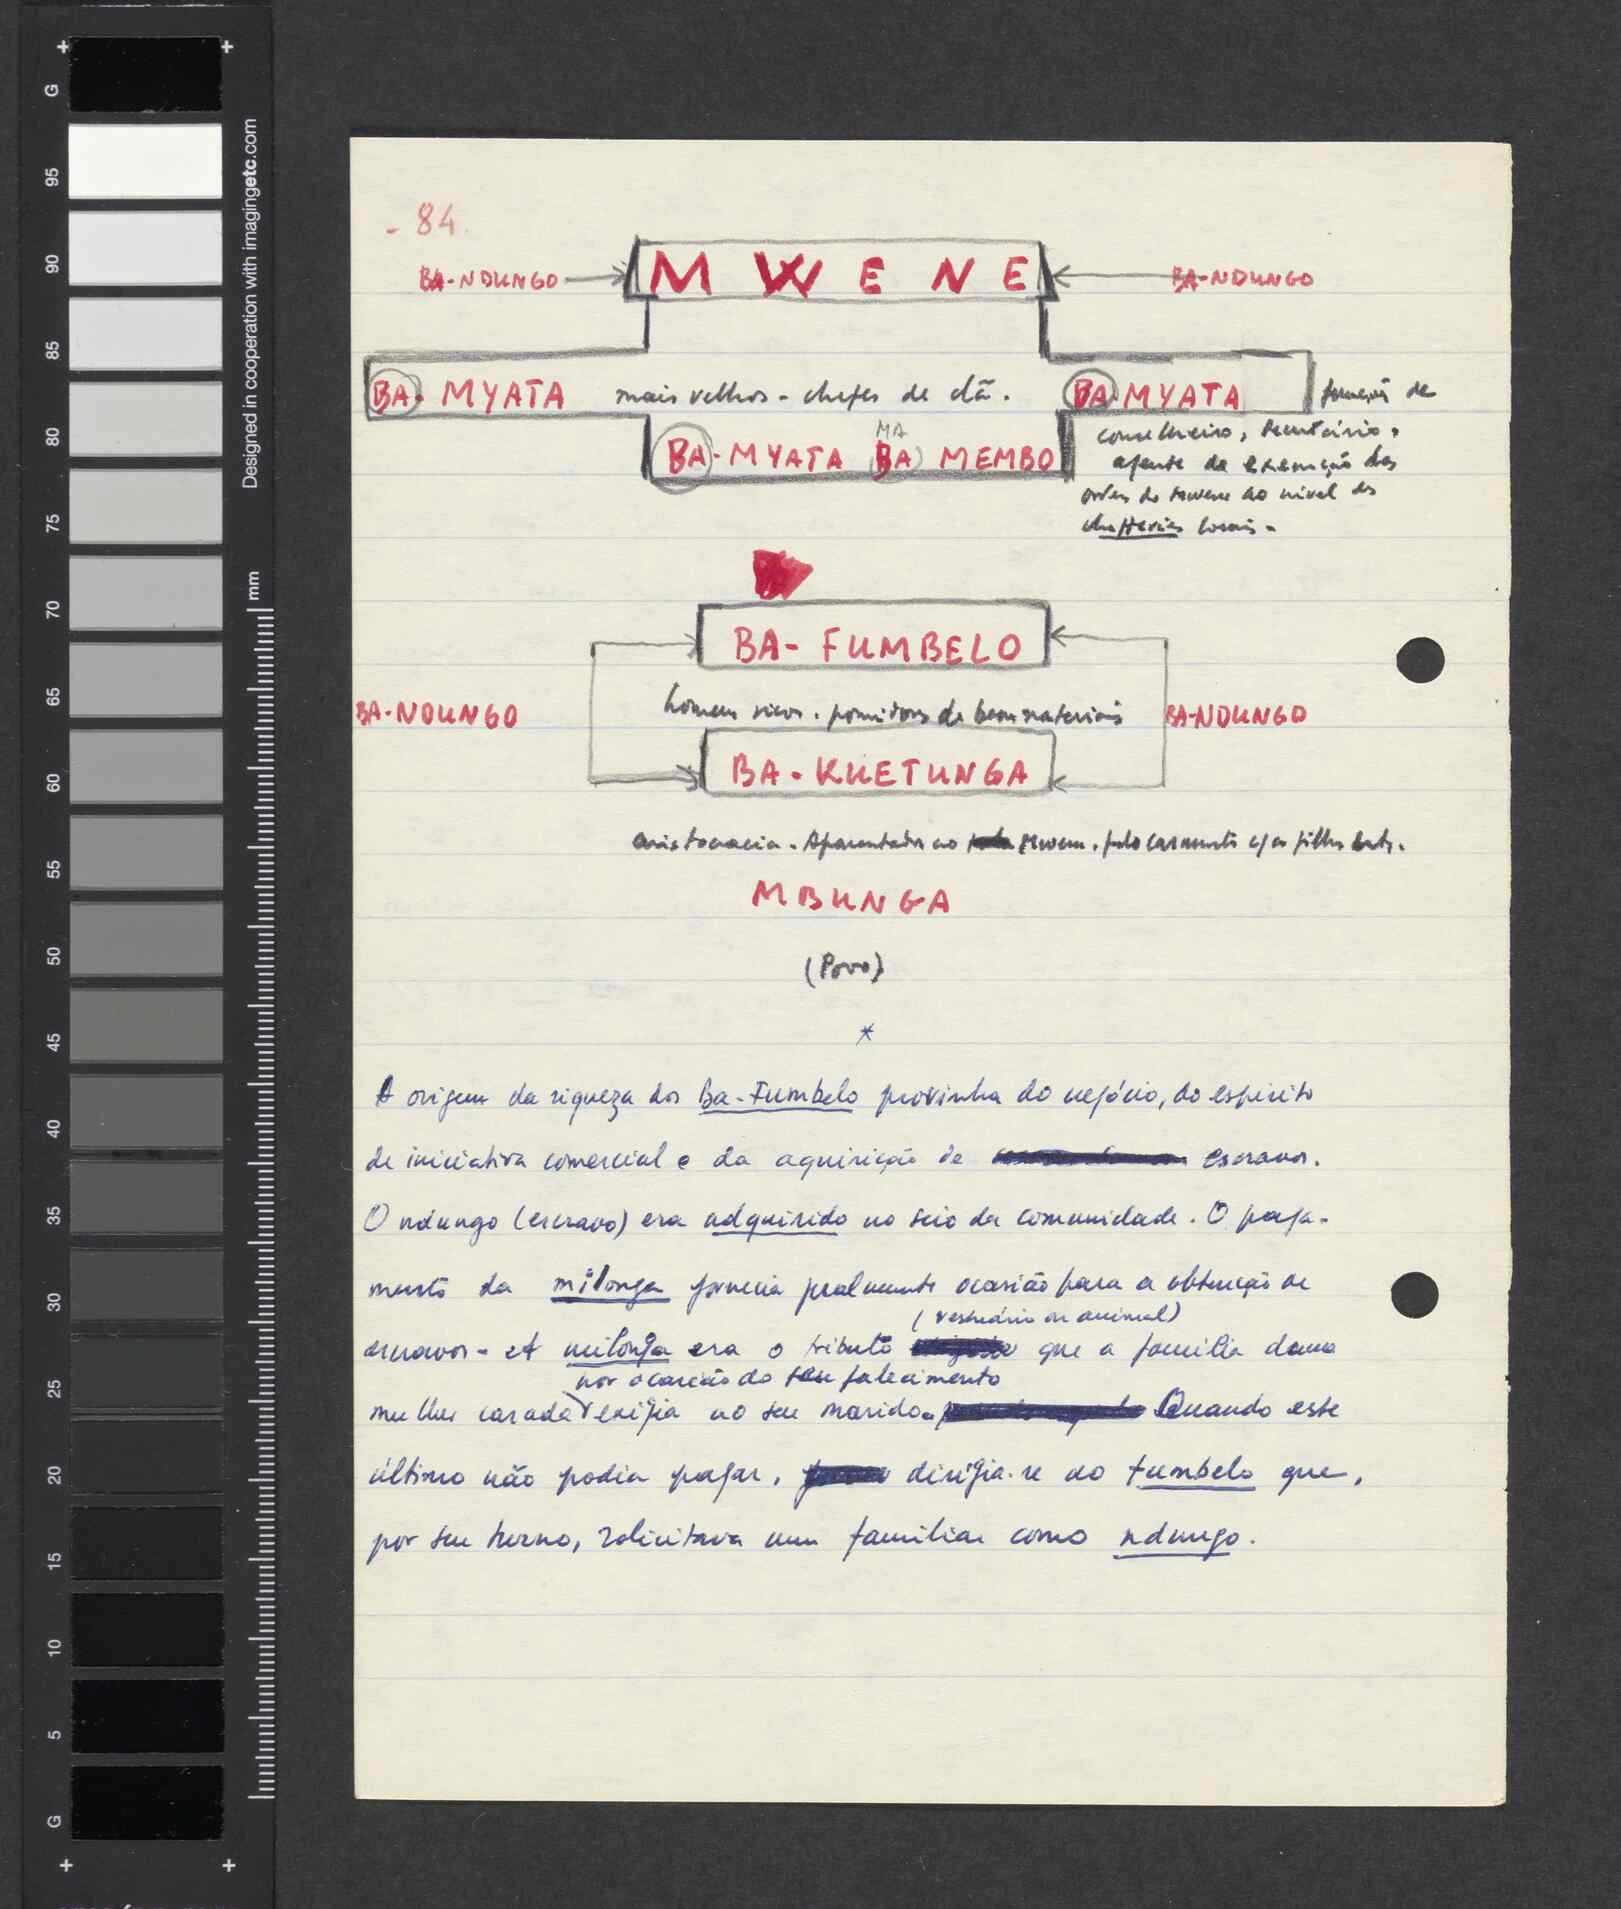 - 84.
BA-NDUNGO MWENE BA-NDUNGO
BA-MYATA mais velhos - chefes de clã. BA-MYATA função de
conselheiro, secretário,
BA-MYATA BA MEMBO
MA
agente da execução das
ordens do mwene ao nível das
chefferies locais.
BA-FUMBELO
BA-NDUNGO homens ricos. possuidores de bens materiais BA-NDUNGO
BA-KUETUNGA
aristocracia. Aparentados ao Mwene, pelo casamento c/ as filhas
MBUNGA
(Povo)
*
A origem da riqueza dos Ba-Fumbelo provinha do negócio, do espírito
de iniciativa comercial e da aquisição de escravos.
O ndungo (escravo) era adquirido no seio da comunidade. O paga-
mento da milonga fornecia geralmente ocasião para a obtenção de
(vestuário ou animal)
escravos - A milonga era o tributo que a família duma
por ocasião do seu falecimento
mulher casada exigia ao seu marido. Quando este
último não podia pagar, dirigia-se ao fumbelo que,
por seu turno, solicitava um familiar como ndungo.
G 95 90 85 80 75 70 65 60 55 50 45 40 35 30 25 20 15 10 5 G
Designed in cooperation with imagingetc.com
mm